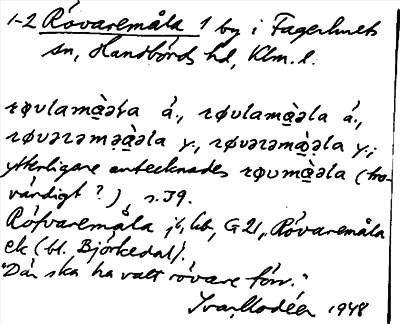 1-2 Rövaremåla 1 by i Fagerhults
sn, Handbörds hd, Klm. l.
røvlamɑ̀əla ä., røvlamɑ̀əla ä.,
røvərəmɑ̀əla y., røvərəmɑ̀əla y.;
ytterligare antecknades røvmɑ̀əla (tro-
värdigt?), s. 39.
Röfvaremåla jb, kb, G 21, Rövaremåla
ek (bl. Björkedal).
"Där ska ha valt rövare förr."
Ivar Modéer 1948